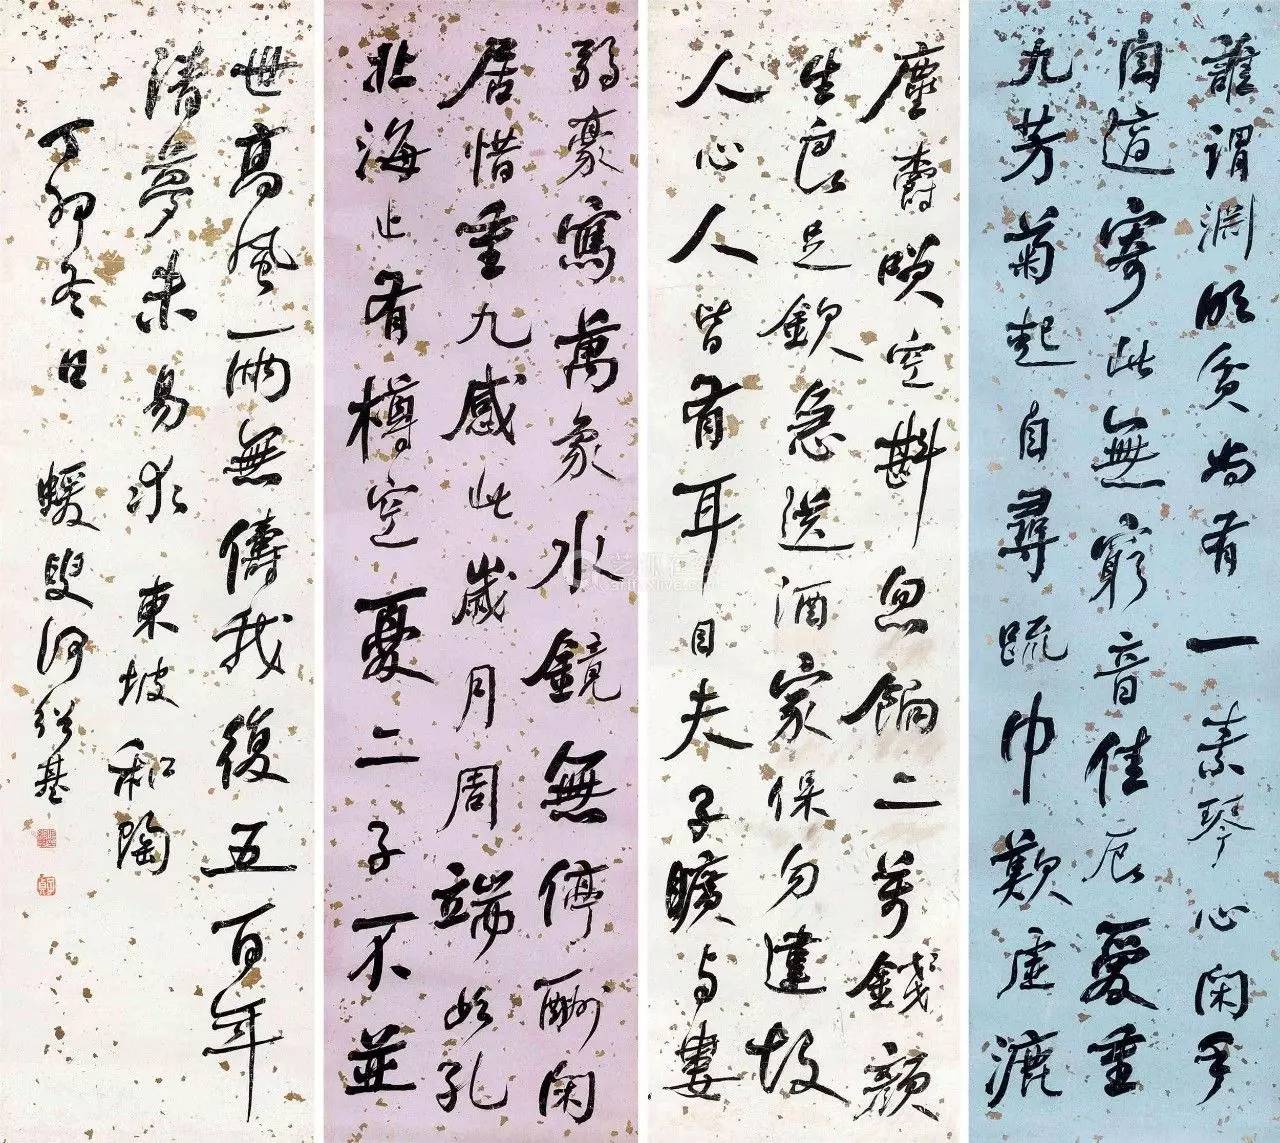 誰謂淵明貧尚有一素琴心閑手
自適寄此無窮音佳辰愛重
九芳菊起自尋疏巾歎虛漉
塵爵唤空斟忽餉二萬錢顏
生良足欽急送酒家保勿違故
人心人皆有耳目夫子曠与婁
弱豪寫萬象水鏡無停酬閑
居惜重九感此歲月周端如孔
北海止有樽空憂二子不並
世高風一兩無儔我復五百年
清夢未易求東坡和陶
丁卯冬日蝯叟何紹基